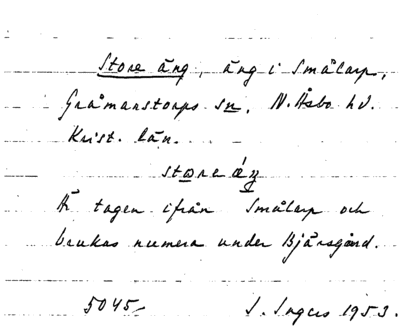 Store äng, äng i Smålarp,
Gråmanstorps sn, N. Åsbo hd.
Krist. län.
store áŋ
Är tagen ifrån Smålarp och
brukas numera under Bjärsgård.
5045 I. Ingers 1953.